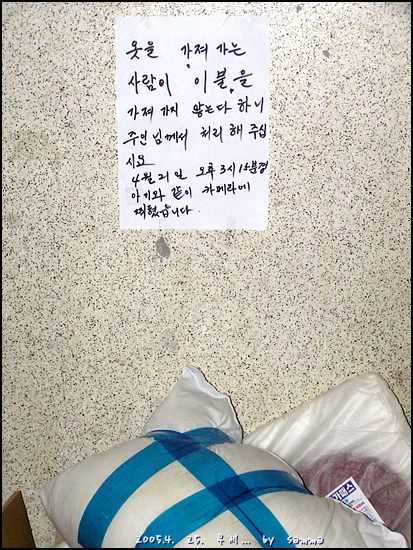 옷을 가져 가는
사람이 이불을
가져 가지 않는다 하니
주인님께서 처리해 주십
시요
4월 21일 오후 3시 15분경
아기와 같이 카메라에
찍혔습니다.
2005.4. 25. by samma